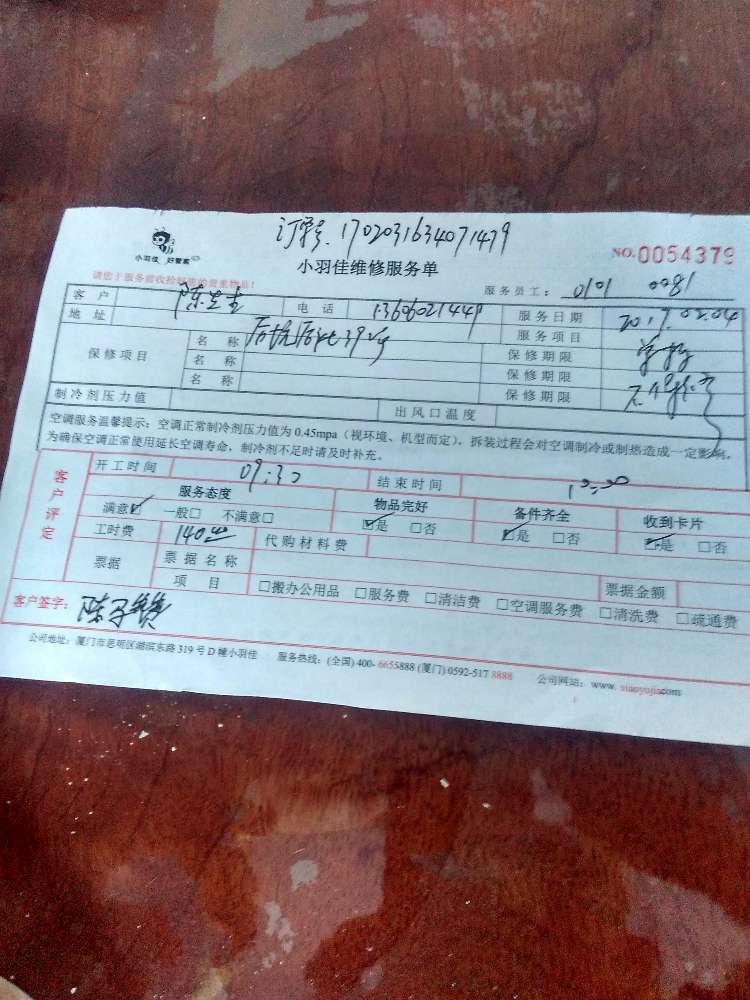 订单号.1702031634071479
小羽佳 好管家
小羽佳维修服务单
NO.0054379
请您于服务前收捡好您的贵重物品!
服务员工: 0101 0081
客户 陈先生 电话 13606021449 服务日期 2017.02.04
地址 服务项目
保修项目 名称 保修期限
名称 保修期限
名称 保修期限
制冷剂压力值 出风口温度
空调服务温馨提示: 空调正常制冷剂压力值为 0.45mpa (视环境、机型而定), 拆装过程会对空调制冷或制热造成一定影响,
为确保空调正常使用延长空调寿命, 制冷剂不足时请及时补充。
客户评定
开工时间 09:30 结束时间 10:00
服务态度 物品完好 备件齐全 收到卡片
满意☑ 一般□ 不满意□ ☑是 □否 ☑是 □否 ☑是 □否
工时费 140.00 代购材料费
票据 票据名称 票据金额
项目 □搬办公用品 □服务费 □清洁费 □空调服务费 □清洗费 □疏通费
客户签字:
公司地址: 厦门市思明区湖滨东路 319 号 D 幢小羽佳 服务热线: (全国) 400- 6655888 (厦门) 0592-517 8888 公司网站: www. xiaoyujia.com